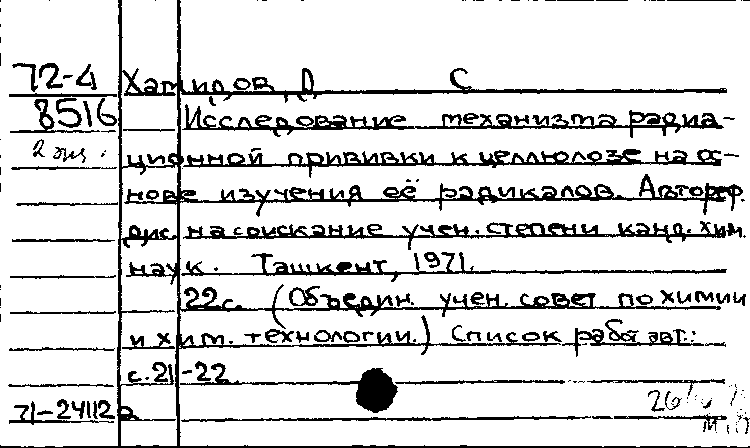 72-4 Хамидов, Д С
8516 Исследование механизма радиа-
2 экз. ционной прививки к целлюлозе на ос-
нове изучения её радикалов. Автореф.
дис. на соискание учен. степени канд. хим.
наук. Ташкент, 1971.
22с. (Объедин. учен. совет по химии
и хим. технологии.) Список работ авт.:
с. 21-22.
71-24112а